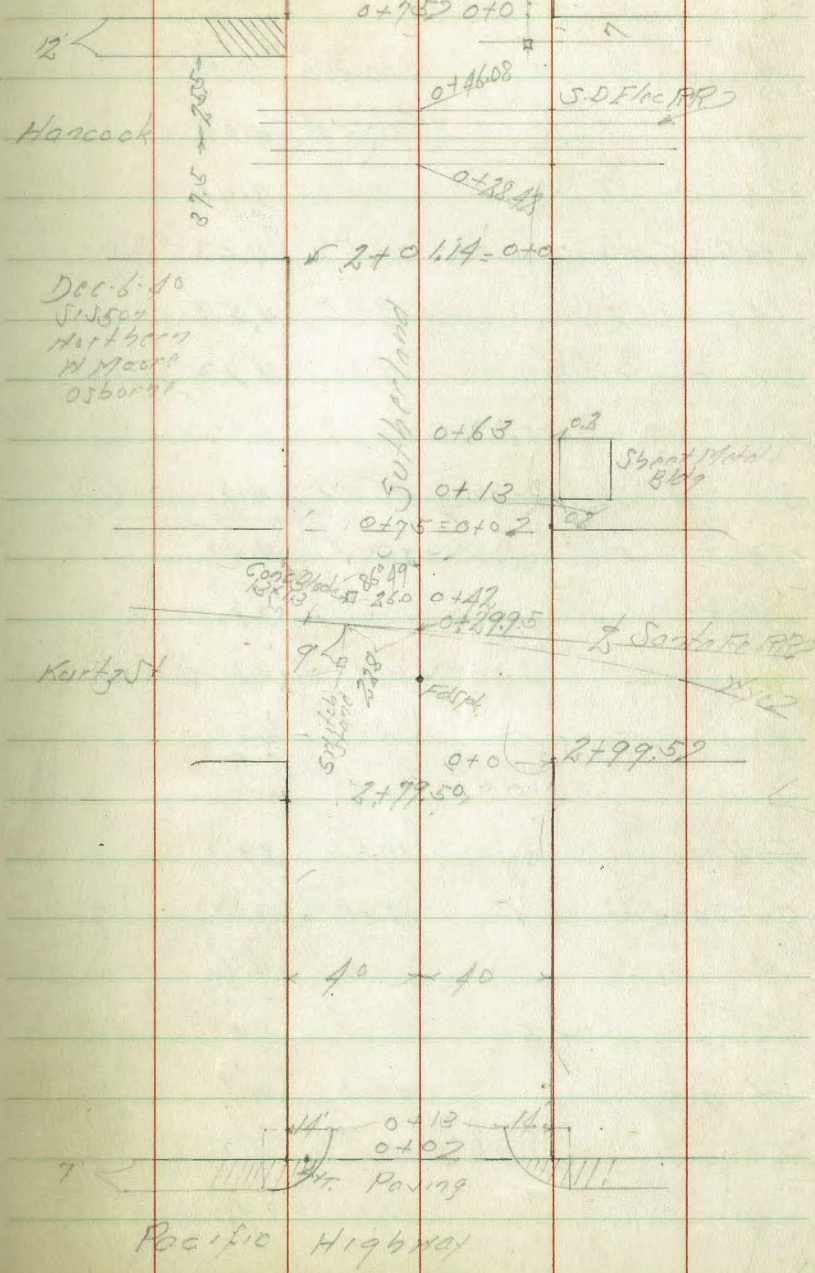 0+752 0+0
12'
7
0+46.08
S.D Elec RR
Hancock
37.5
0+28.48
2+01.14=0+0
Dec-6-40
Sisson
Northern
W Moore
Osborne
Sutherland
0+63
0.3
Sheet Metal
Bldg
0+13
0.2
0+75=0+02
86°49'
Conc Block
13x13
26.0
0+42
0+29.95
℄ Santa Fe RR
Kurtz St
9'
22.8
Fd spk.
Switch
Stand
0+0
2+99.52
2+79.50
40
40
14'
0+13
14'
0+02
7'
Paving
Pacific Highway